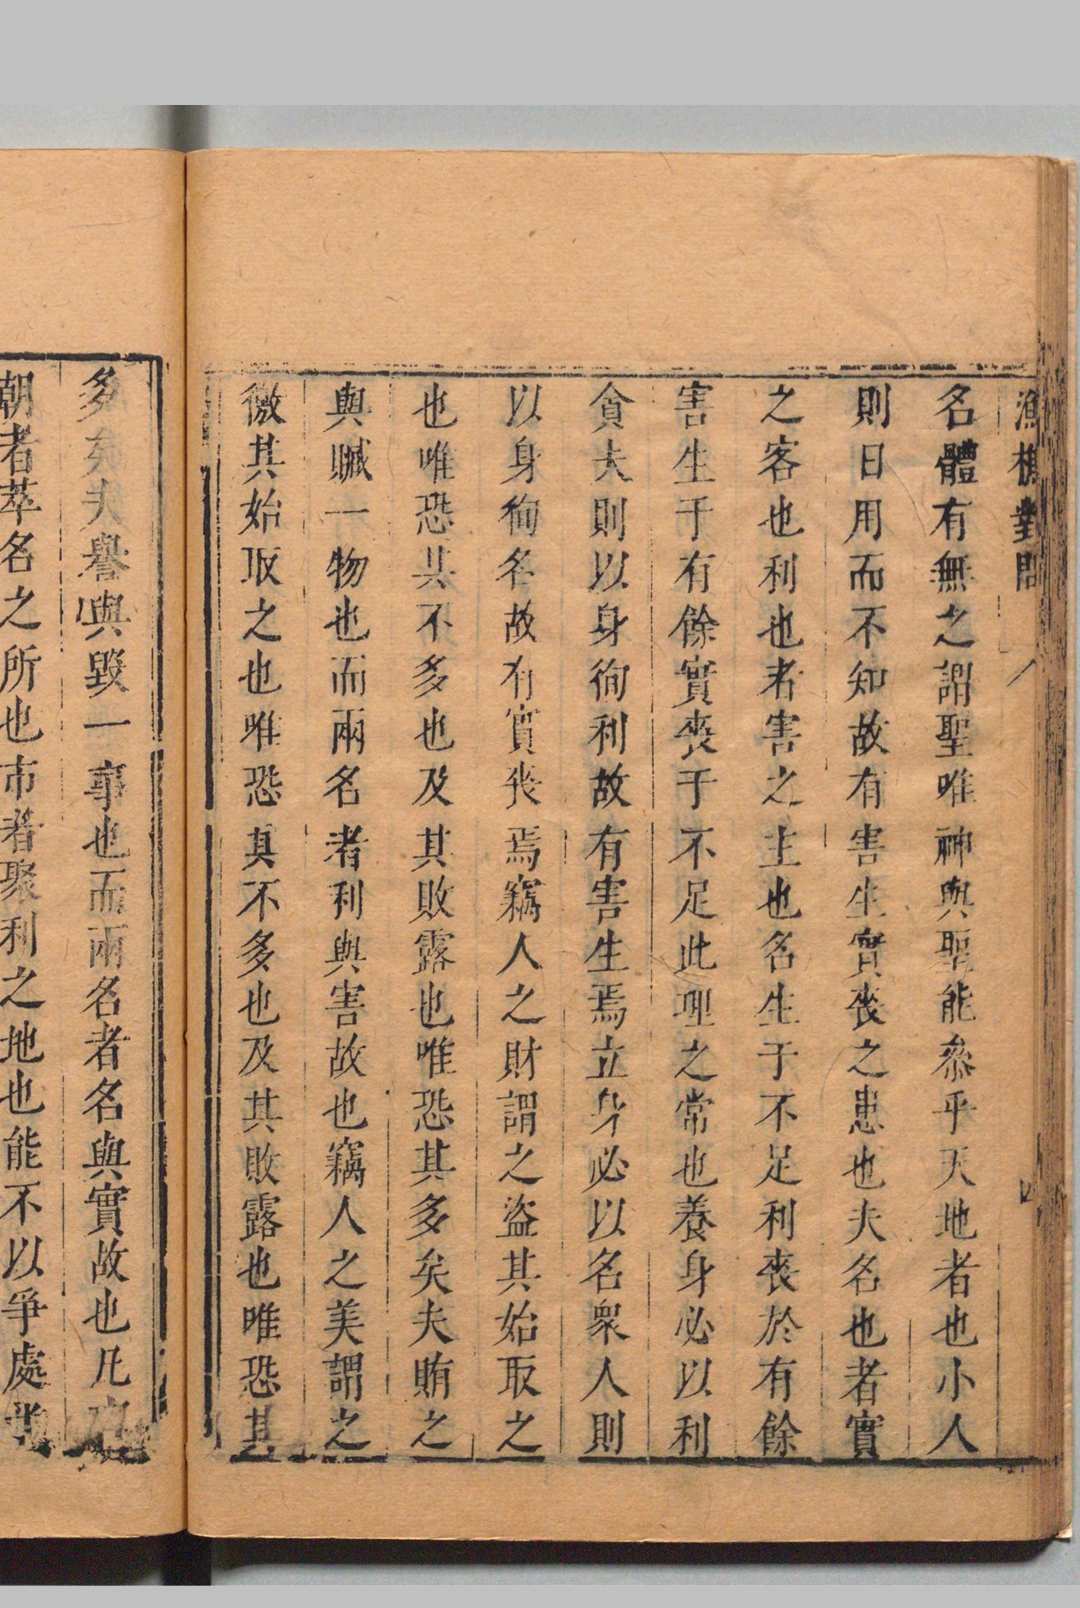 漁樵對問
名體有無之謂聖唯神與聖能叅乎天地者也小人
則日用而不知故有害生實喪之患也夫名也者實
之客也利也者害之主也名生于不足利喪於有餘
害生于有餘實喪于不足此理之常也養身必以利
貪夫則以身徇利故有害生焉立身必以名衆人則
以身徇名故有實喪焉竊人之財謂之盜其始取之
也唯恐其不多也及其敗露也唯恐其多矣夫賄之
與贓一物也而兩名者利與害故也竊人之美謂之
徼其始取之也唯恐其不多也及其敗露也唯恐其
多矣夫譽與毀一事也而兩名者名與實故也凡
朝者萃名之所也市者聚利之地也能不以爭處